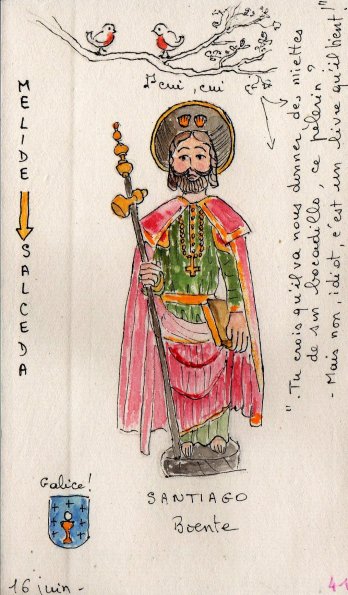 "cui, cui
MELIDE
SALCEDA
". Tu crois qu'il va nous donner des miettes
de son bocadillo, ce pèlerin?
- Mais non, idiot, c'est un livre qu'il tient!"
Galice!
SANTIAGO
Boente
16 juin -